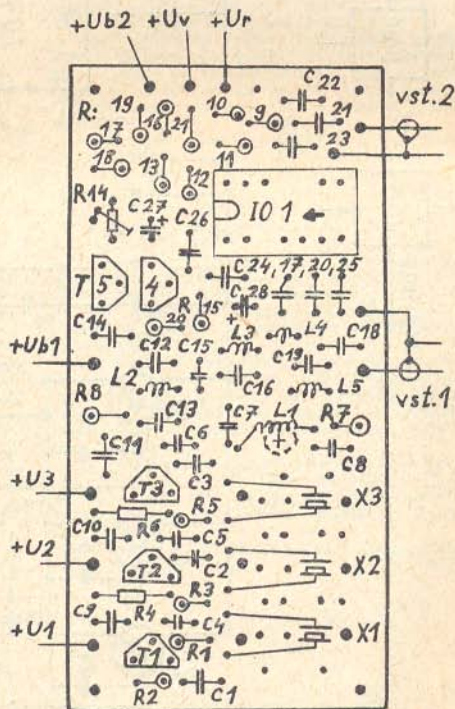 +Ub2 +Uv +Ur
C 22
R: 19 16 21 10 9 21 vst.2
17 23
18 13 12 11
R14 C27 + C26 IO 1
T 5 4 C 24,17,20,25
R 15 C 28 +
C14 20 L3 L4 C18
+Ub1 C12 C15 C19
L2 C16 L5 vst.1
R8 C13 C7 L1 R7
C11 C6 C8
C3
+U3 T3 X3
R6 R5
C10 C5
+U2 T2 C2 X2
R3
C9 R4 C4
+U1 T1 R1 X1
R2 C1